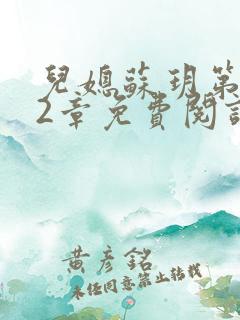 兒媳蘇玥第
2章免費閱讀
黃彥銘
未經同意禁止轉載